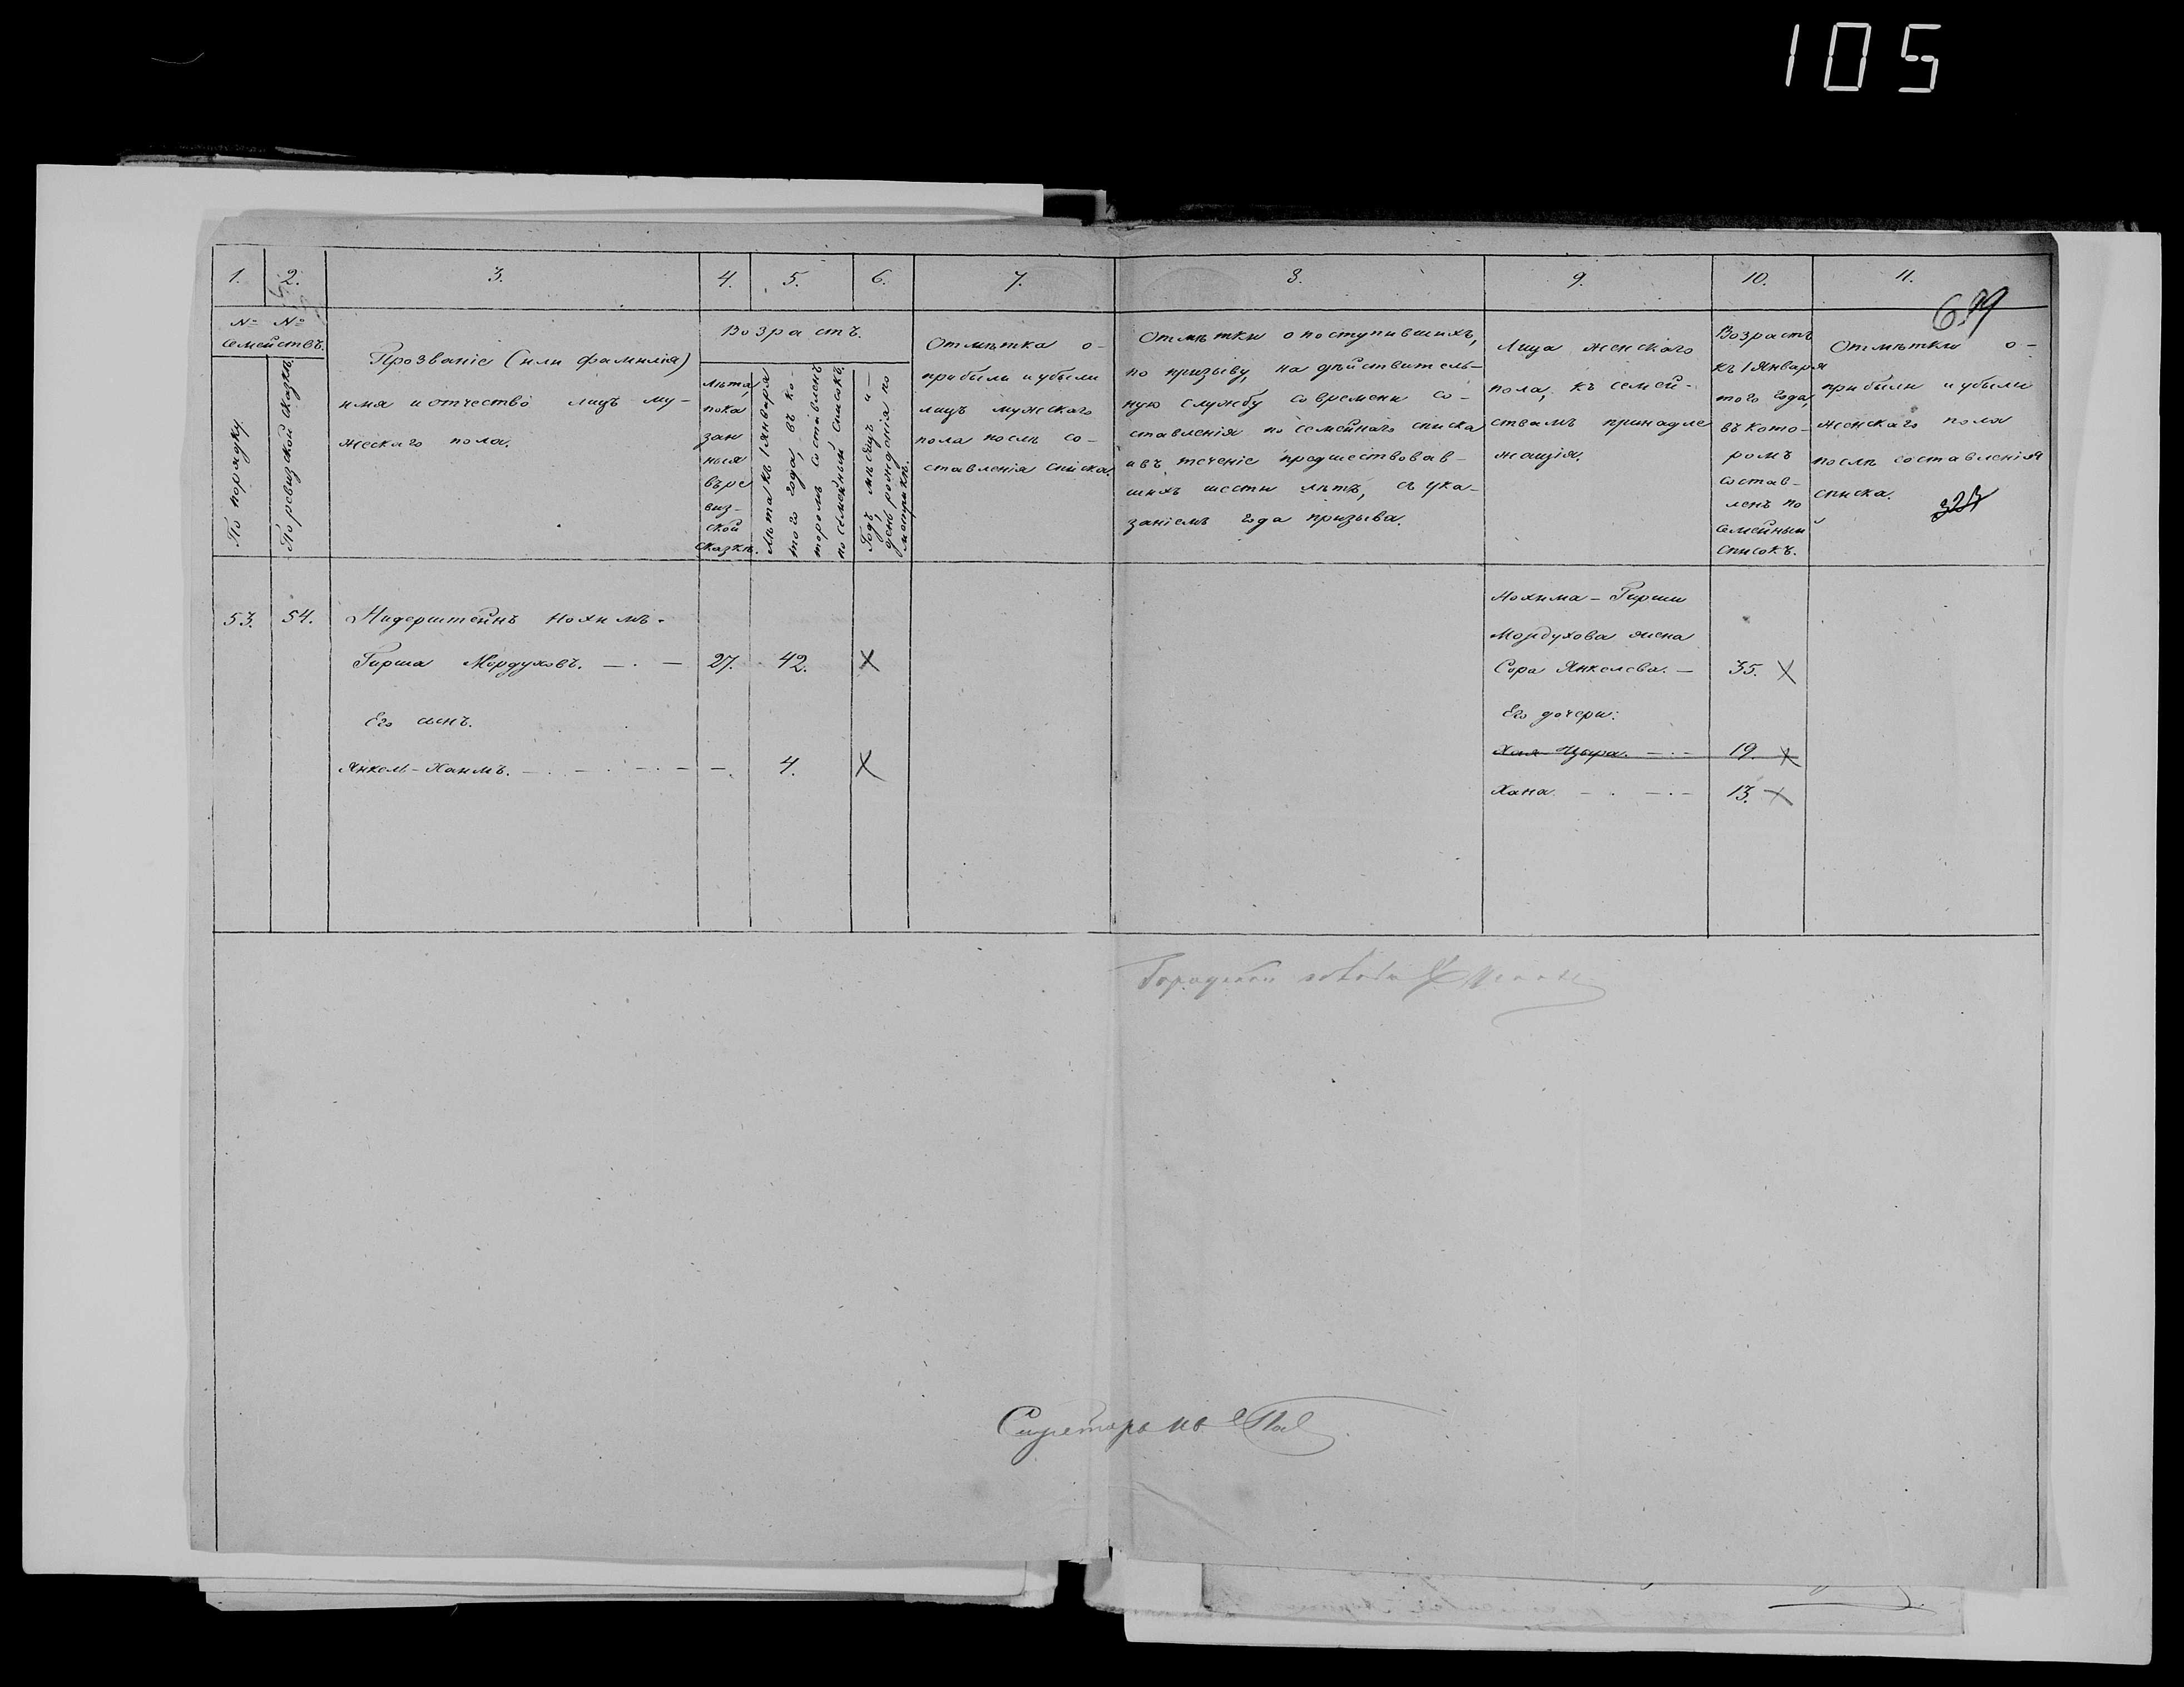 105
1. 2. 3. 4. 5. 6. 7. 8. 9. 10. 11.
699
№ №
семействъ.
По порядку.
По ревизской сказкѣ.
Прозваніе (или фамилія)
имя и отчество лицъ му-
жескаго пола.
Возрастъ.
Лѣта,
пока
зан
ныя
въ ре
виз-
ской
сказкѣ.
Лѣта къ 1 Января
того года, въ ко-
торомъ составленъ
посемейный списокъ.
Годъ, мѣсяцъ и-
день рожденія по
метрикѣ.
Отмѣтка о-
прибыли и убыли
лицъ мужскаго
пола послѣ со-
ставленія списка.
Отмѣтки о поступившихъ,
по призыву, на дѣйствитель-
ную службу со времени со-
ставленія посемейнаго списка
и въ теченіе предшествовав-
шихъ шести лѣтъ, съ ука-
заніемъ года призыва.
Лица женскаго
пола, къ семей-
ствамъ принадле
жащія.
Возрастъ
къ 1 Января
того года,
въ кото-
ромъ
состав-
ленъ по
семейный
списокъ.
Отмѣтки о-
прибыли и убыли
женскаго пола
послѣ составленія
списка.
53. 54. Нидерштейнъ Нохимъ-
Гирша Мордуховъ. — . — 27. 42. X
Его сынъ.
Янкель-Хаимъ. — . — . — . — — . 4. X
Нохима-Гирши
Мордухова жена
Сора Янкелева. — 35. X
Его дочери:
Хая-Цыра. — . — 19. X
Хана — . — . — 13. X
Городской
Секретарь